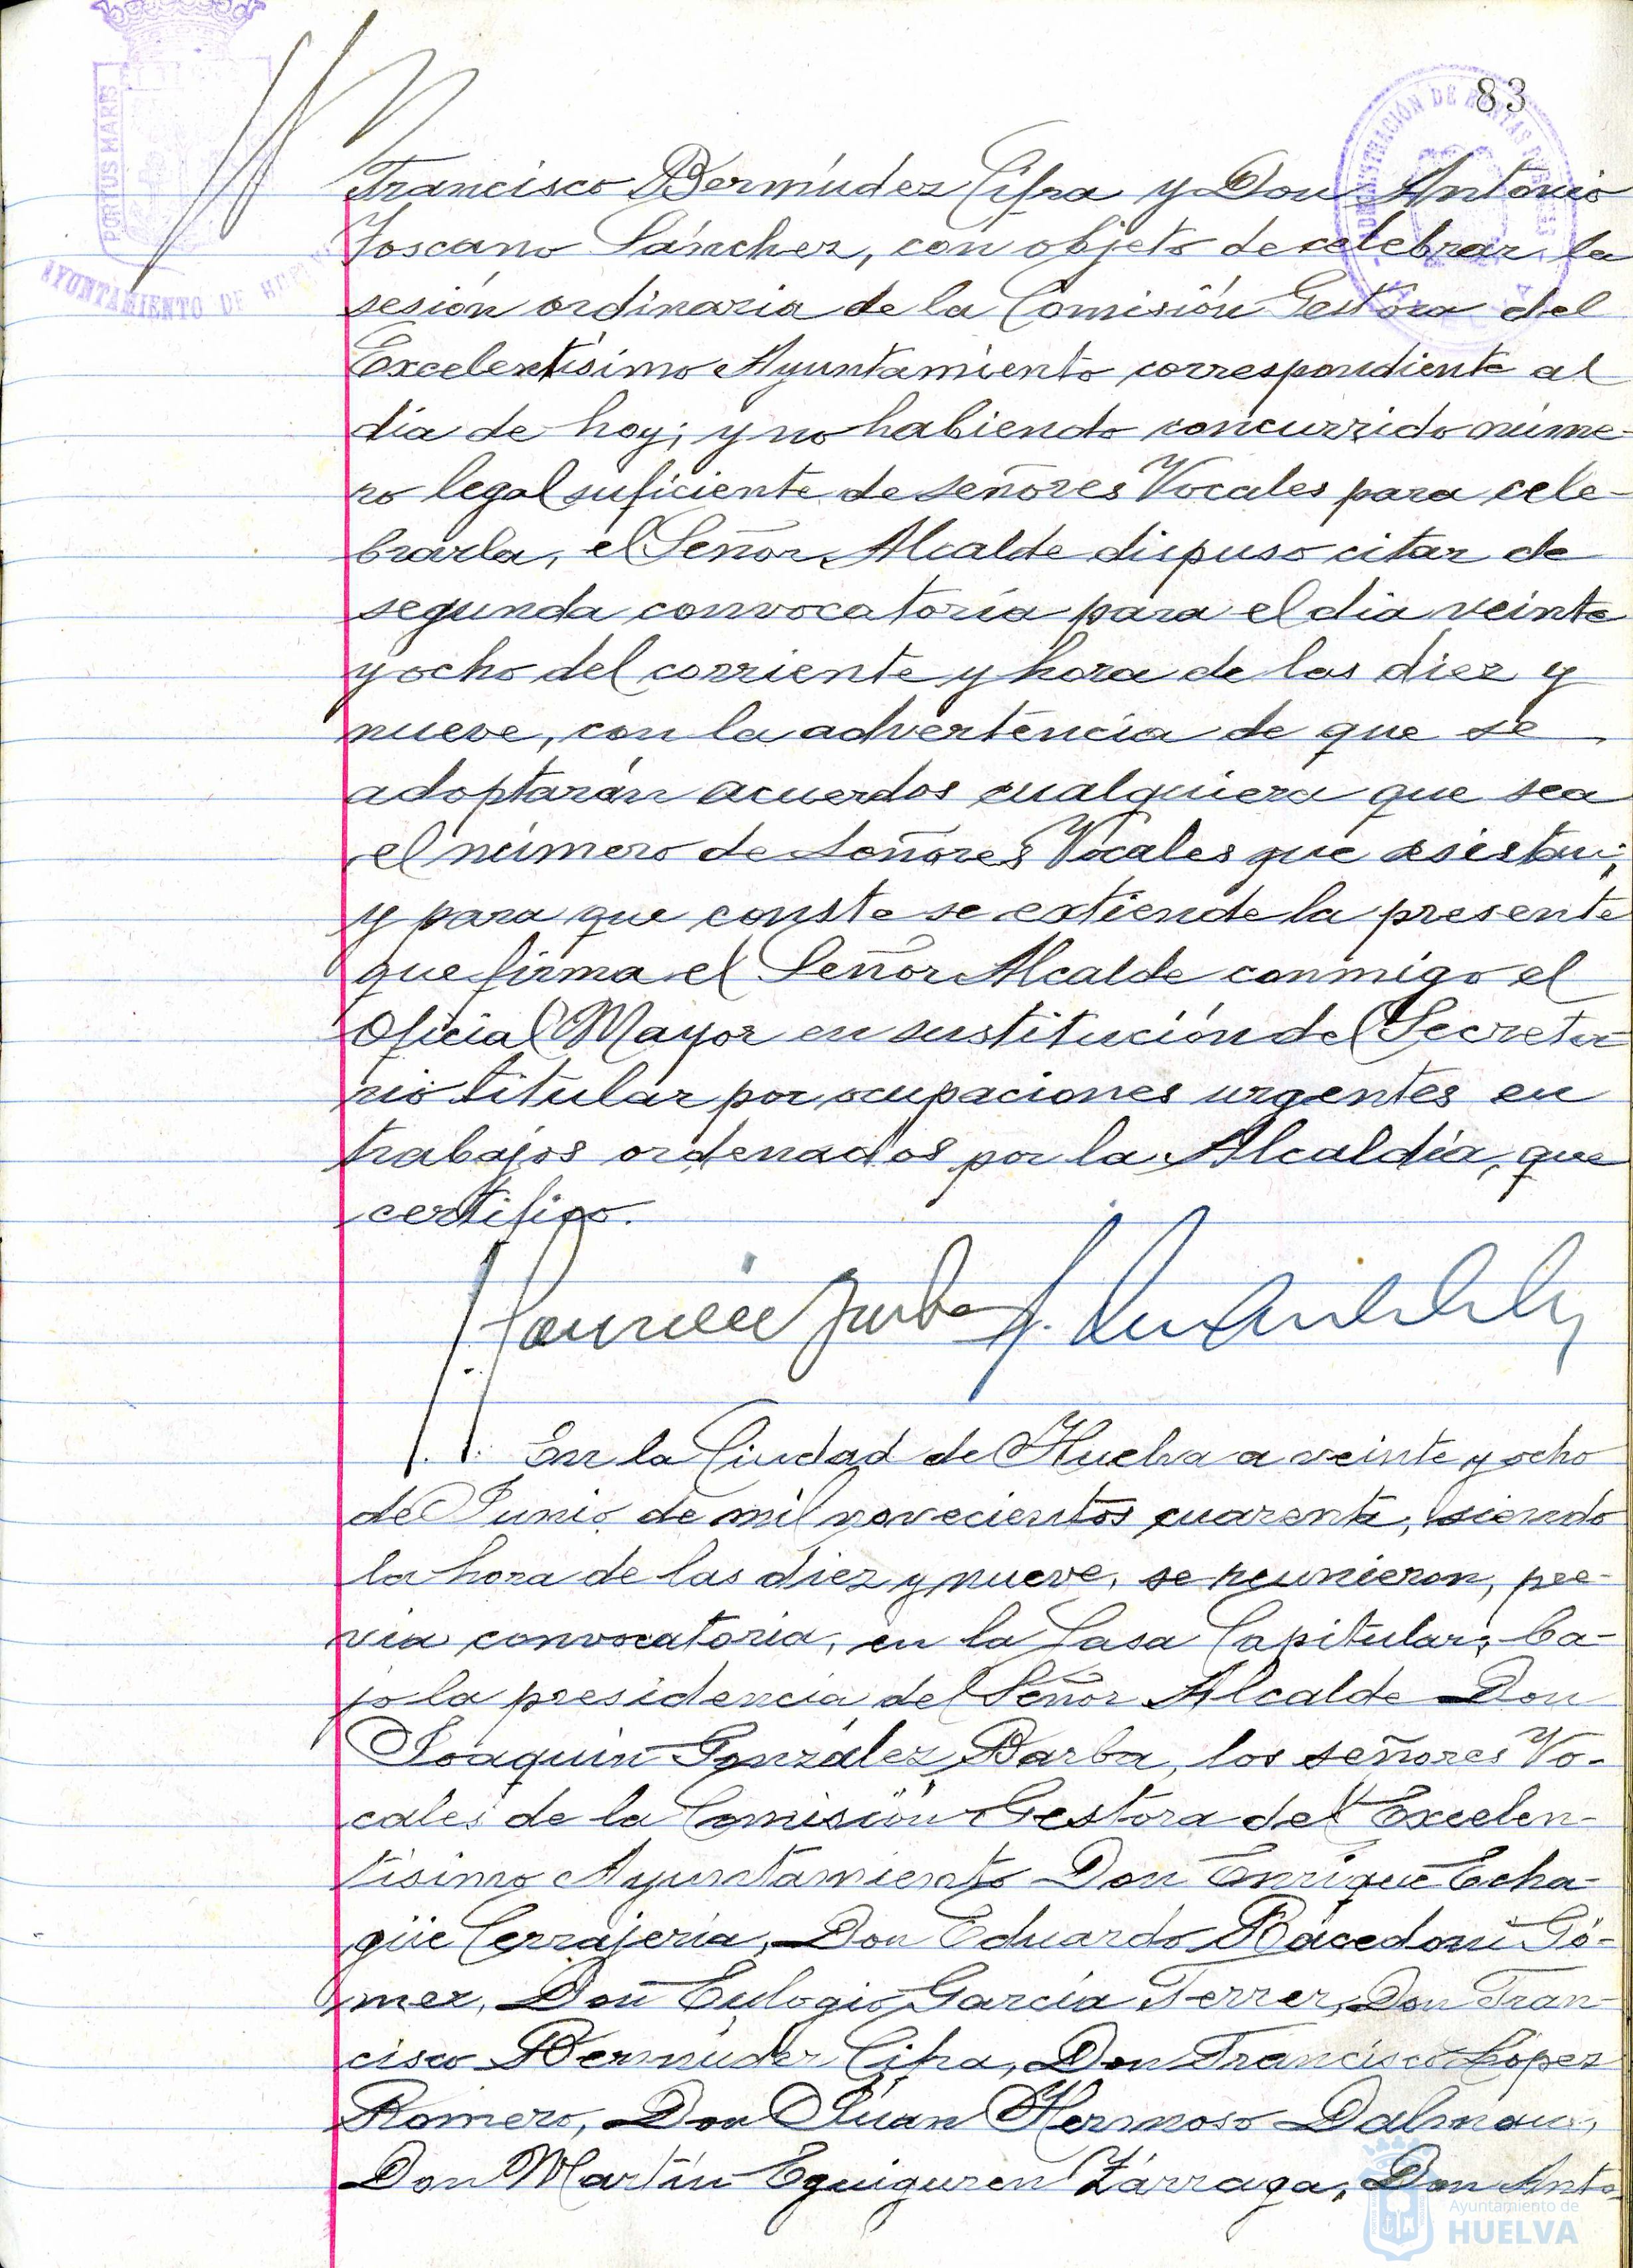 83
PORTUS MARIS
AYUNTAMIENTO DE HUELVA
Francisco Bermúdez Cifra y Don Antonio
Toscano Sánchez, con objeto de celebrar la
sesión ordinaria de la Comisión Gestora del
Excelentísimo Ayuntamiento correspondiente al
día de hoy; y no habiendo concurrido núme-
ro legal suficiente de señores Vocales para cele-
brarla, el Señor Alcalde dispuso citar de
segunda convocatoria para el día veinte
y ocho del corriente y hora de las diez y
nueve, con la advertencia de que se
adoptarán acuerdos cualquiera que sea
el número de señores Vocales que asistan;
y para que conste se extiende la presente
que firma el Señor Alcalde conmigo el
Oficial Mayor en sustitución del Secreta-
rio titular por ocupaciones urgentes en
trabajos ordenados por la Alcaldía, que
certifico.
En la Ciudad de Huelva a veinte y ocho
de Junio de mil novecientos cuarenta, siendo
la hora de las diez y nueve, se reunieron, pre-
via convocatoria, en la Casa Capitular, ba-
jo la presidencia del Señor Alcalde Don
Joaquín González Barba, los señores Vo-
cales de la Comisión Gestora del Excelen-
tísimo Ayuntamiento Don Enrique Echa-
güe Cerrajería, Don Eduardo Rácedoni Gó-
mez, Don Eulogio García Ferrer, Don Fran-
cisco Bermúdez Cifra, Don Francisco López
Romero, Don Juan Hermoso Dalmau,
Don Martín Eguiguren Zárraga, Don Anto-
Ayuntamiento de
HUELVA